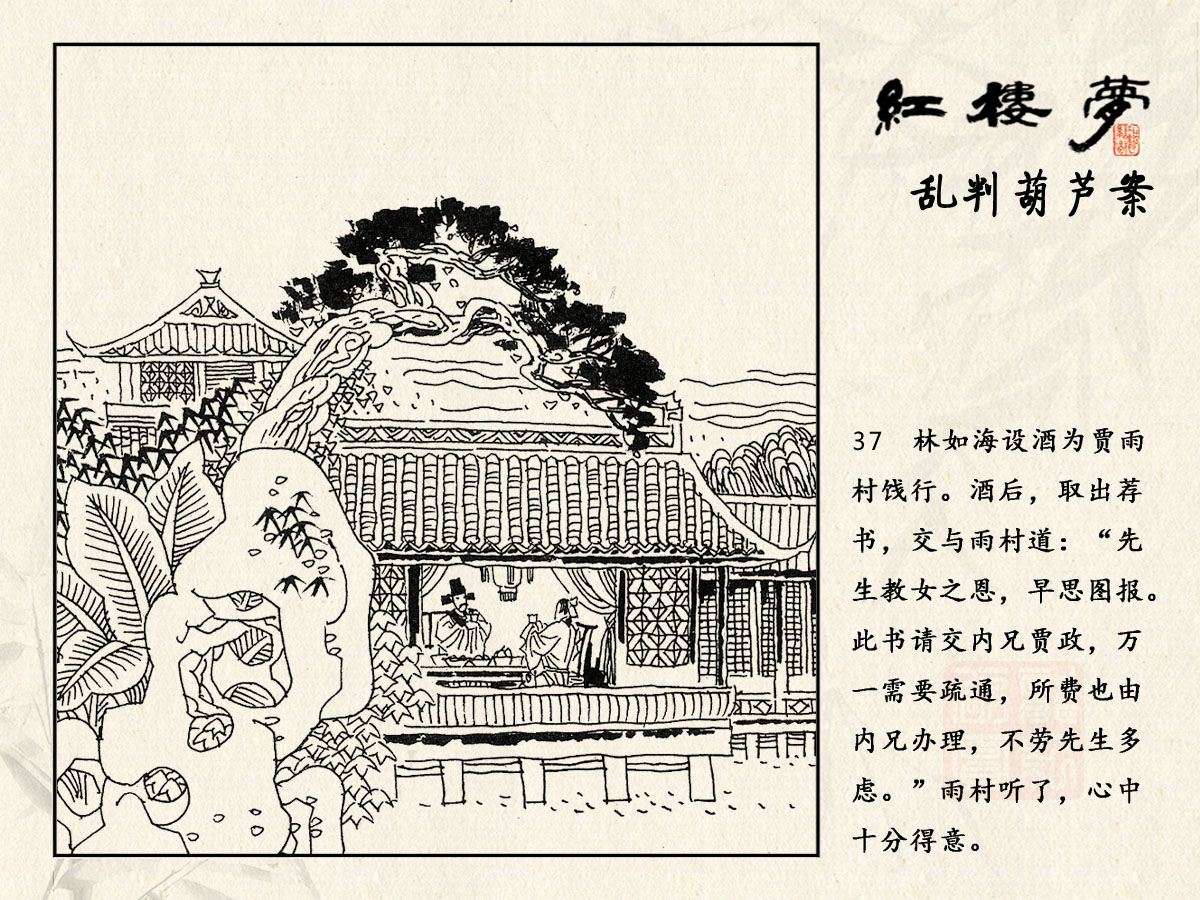 紅樓夢
乱判葫芦案
37 林如海设酒为贾雨
村饯行。酒后，取出荐
书，交与雨村道：“先
生教女之恩，早思图报。
此书请交内兄贾政，万
一需要疏通，所费也由
内兄办理，不劳先生多
虑。”雨村听了，心中
十分得意。